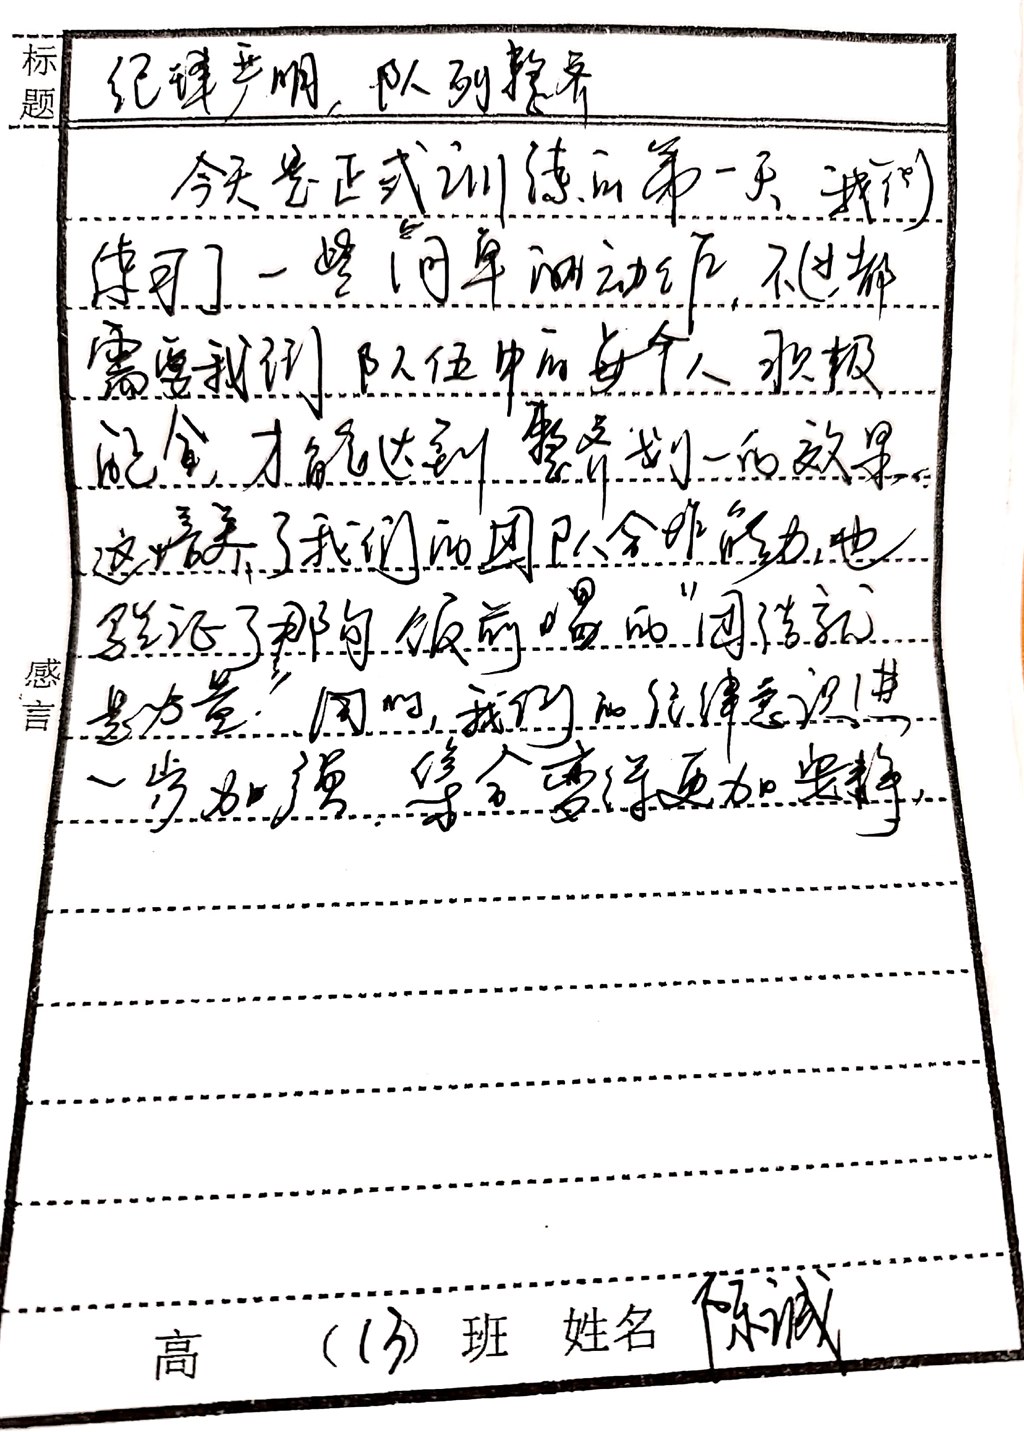 标题
纪律严明，队列整齐
今天是正式训练的第一天，我们
练习了一些简单的动作，不过都
需要我们队伍中的每个人积极
配合，才能达到整齐划一的效果。
这培养了我们的团队合作能力，也
验证了那句饭前唱的“团结就
是力量”。同时，我们的纪律意识进
一步加强，集合变得更加安静。
感言
高（13）班 姓名 陈诚